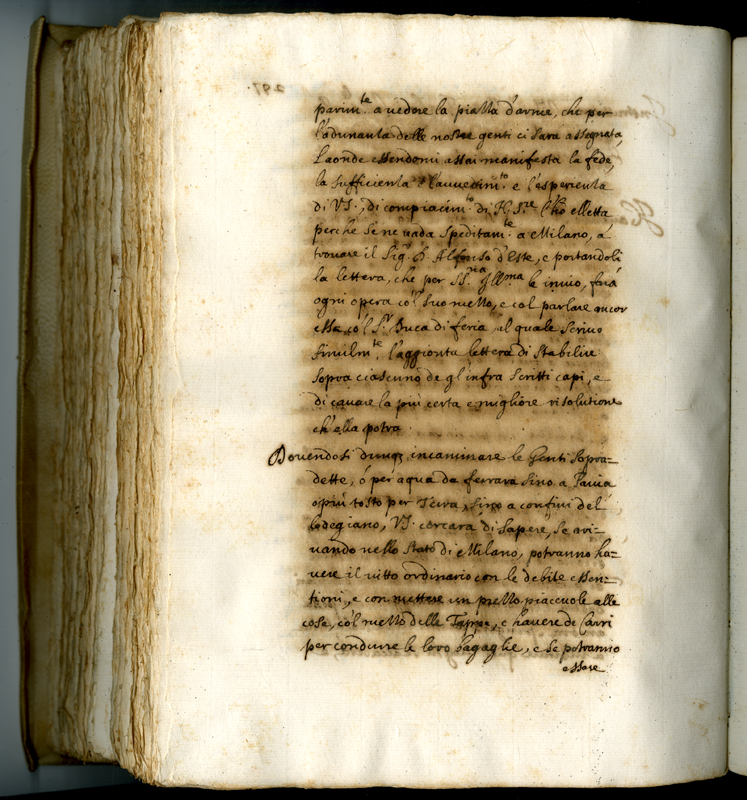 parim.te a uedere la piazza d'arme, che per
l'adunanza delle nostre genti ci sara assegnata,
Laonde essendomi assai manifesta la fede,
la sufficienza l'auuedim.to e l'esperienza
di VS., di compiacim.to di N. S.re l'hò eletta
perche se ne uada speditam.te a Milano, à
trouare il Sig.r D. Alfonso d'Este, e portandoli
la lettera, che per SS.ria Ill.ma le inuio, farà
ogni opera cò'l suo mezzo, e col parlare ancor
essa cò'l S.r Duca di feria, al quale scriuo
simil.mte l'aggionta lettera di stabilire
sopra ciascuno de gl'infra scritti capi, e
di cauare la più certa e migliore risolutione
ch'ella potrà.
Douendosi dunq; incaminare le Genti sopra=
dette, ò per aqua da ferrara sino a Pauia
ò più tosto per Terra, sino a confini del
Lodegiano, VS. cercarà di sapere, se arri=
uando nello stato di Milano, potranno ha=
uere il uitto ordinario con le debite essen=
tioni, e con mettere un prezzo piaceuole alle
cose, cò'l mezzo delle Tappe, e hauere de Carri
per condurre le loro bagaglie, e se potranno
essere